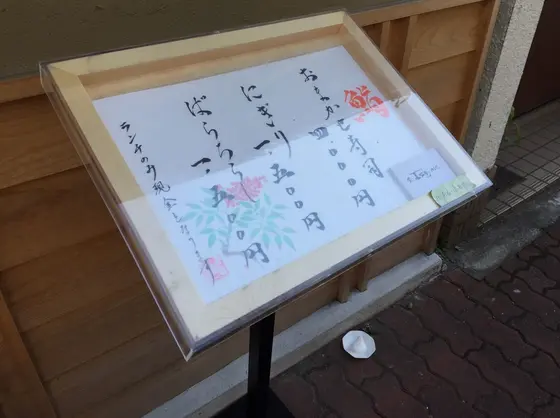 鮨
おまかせ寿司
四、〇〇〇円
にぎり 一、五〇〇円
ばらちらし 一、五〇〇円
ランチのみ現金となります